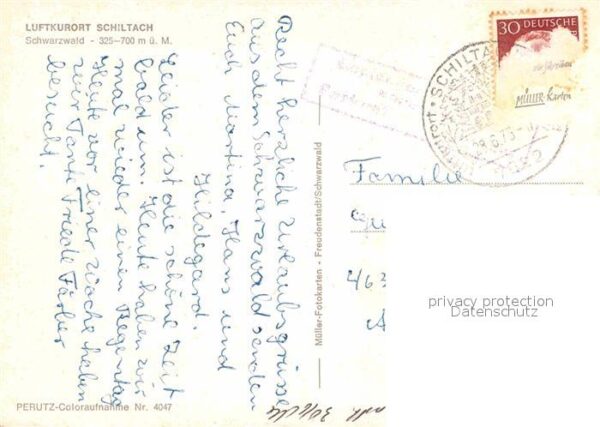 LUFTKURORT SCHILTACH
Schwarzwald - 325-700 m ü. M.
Recht herzliche Urlaubsgrüsse
aus dem Schwarzwald senden
Euch Martina, Hans und
Hildegard.
Leider ist die schöne Zeit
bald um. Heute haben wir
mal wieder einen Regentag
Heute vor einer Woche haben
wir Tante Friede Färber
besucht.
PERUTZ-Coloraufnahme Nr. 4047
Müller-Fotokarten - Freudenstadt/Schwarzwald
30 DEUTSCHE
MÜLLER-Karten
SCHILTA
Luftkurort
7622
Familie
463
privacy protection
Datenschutz